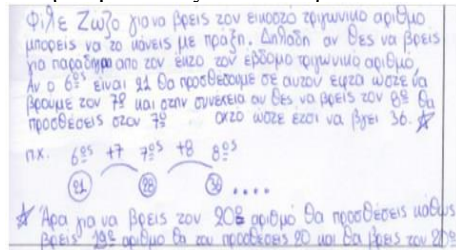 Φίλε Ζωζο για να βρεις τον εικοστό τριγωνικό αριθμο
μπορείς να το κάνεις με πράξη. Δηλαδή αν θες να βρεις
για παράδειγμα απο τον έκτο τον έβδομο τριγωνικο αριθμό,
Αν ο 6ος είναι 21 θα προσθέσουμε σε αυτον εφτα ώστε να
βρουμε τον 7ο και στην συνέχεια αν θες να βρεις τον 8ο θα
προσθέσεις στον 7ο οχτο ώστε έτσι να βγει 36. ☆
π.χ. 6ος +7 7ος +8 8ος
21 28 36 ....
☆ Άρα για να βρεις τον 20ο αριθμό θα προσθέσεις καθώς
βρεις 19ο αριθμο θα του προσθέσεις 20 και θα βρεις τον 20ο